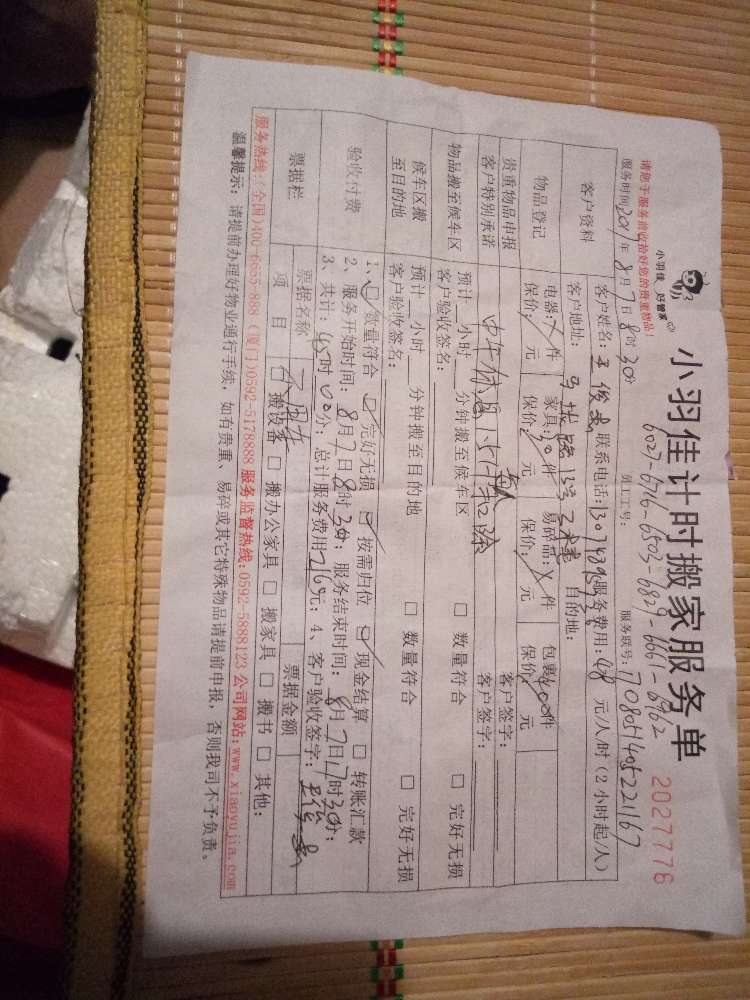 小羽佳 好管家
小羽佳计时搬家服务单
2027776
请您于服务前收拾好您的贵重物品！
员工工号：6027-6716-6503-6829-6661-6962
服务时间2017年8月7日8时30分
服务联号：170805140522167
客户资料
客户姓名：王俊 联系电话： 服务费用：48元/人/时（2小时起/人）
客户地址： 路 目的地：
物品登记
电器： 件 家具：30件 易碎品： 件 包裹：400件
保价： 元 保价： 元 保价： 元 保价： 元
贵重物品申报 客户签字：
客户特别承诺 中午休息1小时 扣除 客户签字：
物品搬至候车区
预计 小时 分钟搬至候车区 □ 数量符合 □ 完好无损
客户验收签名：
候车区搬至目的地
预计 小时 分钟搬至目的地 □ 数量符合 □ 完好无损
客户验收签名：
验收付费
1、☑ 数量符合 ☑ 完好无损 ☑ 按需归位 ☑ 现金结算 □ 转账汇款
2、服务开始时间：8月7日8时30分；服务结束时间：8月7日17时30分；
3、共计：45时00分；总计服务费用2160元；4、客户验收签字：王俊
票据栏
票据名称 票据金额
项目 □ 搬设备 □ 搬办公家具 □ 搬家具 □ 搬书 □ 其他：
服务热线：（全国）400-6655-888（厦门）0592-5178888 服务监督热线：0592-5888123 公司网站：www.xiaoyujia.com
温馨提示：请提前办理好物业通行手续，如有贵重、易碎或其它特殊物品请提前申报，否则我司不予负责。